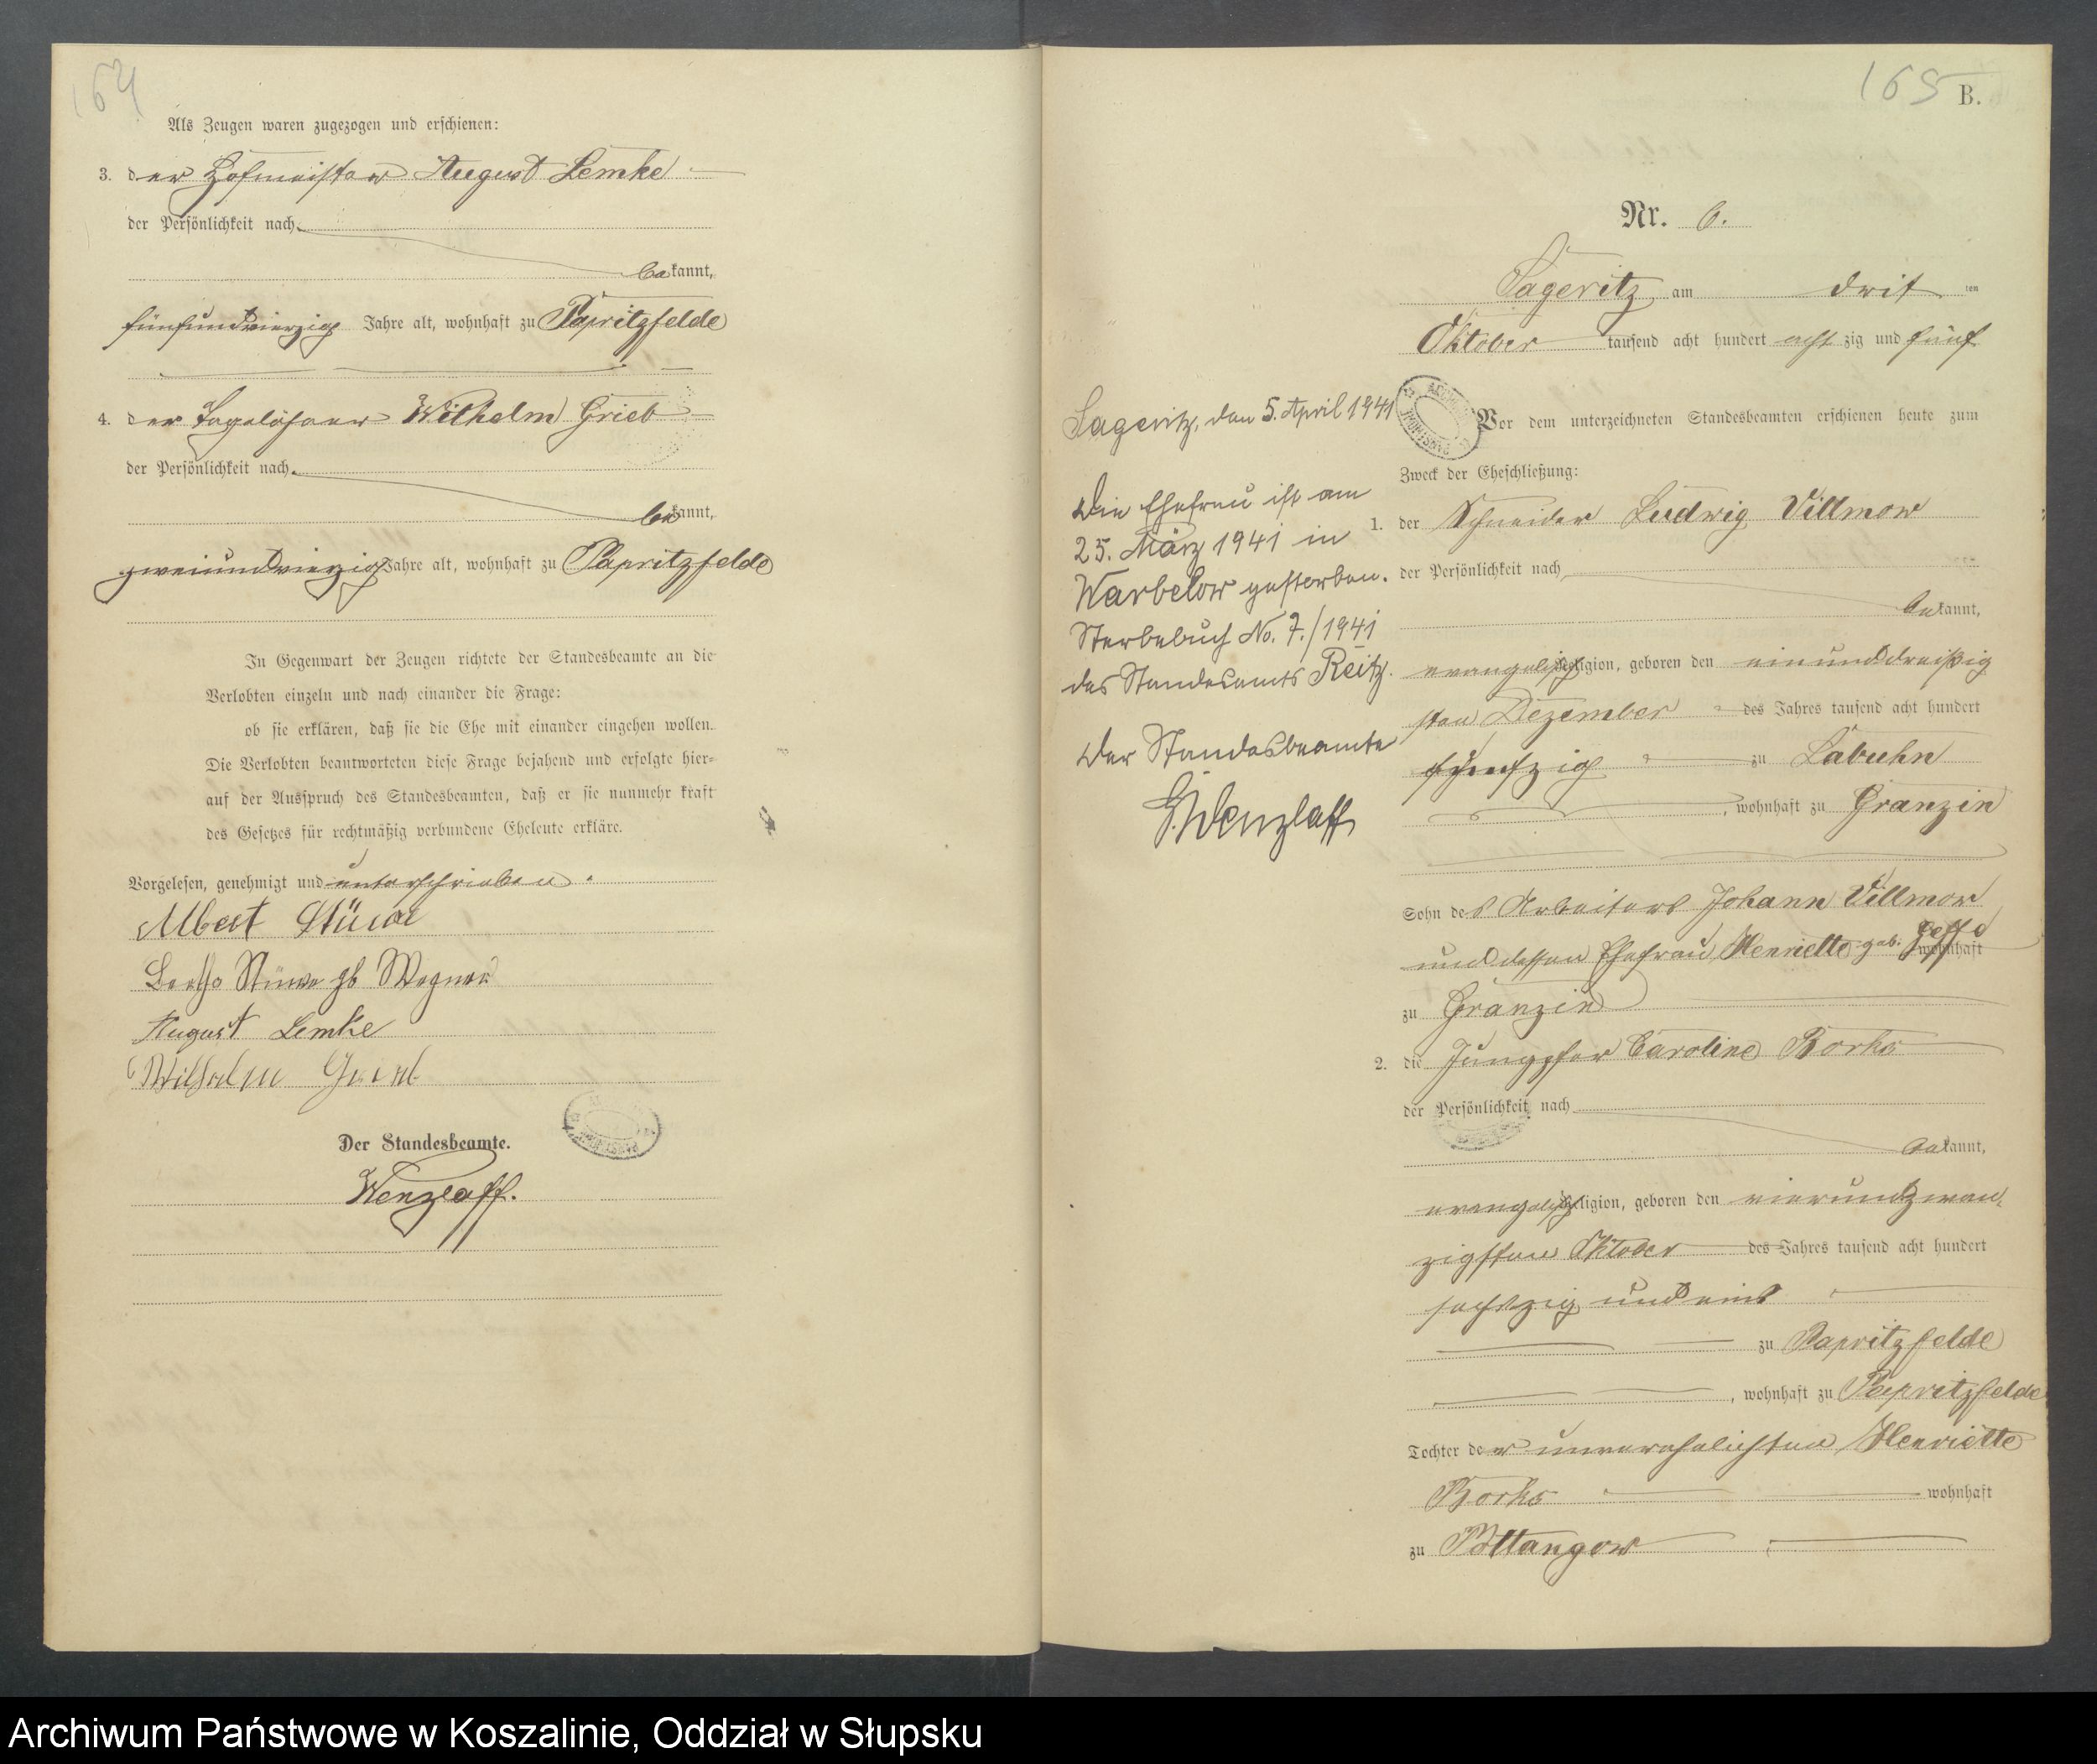 164
Als Zeugen waren zugezogen und erschienen:
3. der Hofmeister August Lemke
der Persönlichkeit nach
bekannt,
fünfundvierzig Jahre alt, wohnhaft zu Papritzfelde
4. der Tagelöhner Wilhelm Grieb
der Persönlichkeit nach
bekannt,
zweiundvierzig Jahre alt, wohnhaft zu Papritzfelde
In Gegenwart der Zeugen richtete der Standesbeamte an die
Verlobten einzeln und nach einander die Frage:
ob sie erklären, daß sie die Ehe mit einander eingehen wollen.
Die Verlobten beantworteten diese Frage bejahend und erfolgte hier-
auf der Ausspruch des Standesbeamten, daß er sie nunmehr kraft
des Gesetzes für rechtmäßig verbundene Eheleute erkläre.
Vorgelesen, genehmigt und unterschrieben.
Albert Stüwe
Bertha Stüwe gb Wegner
August Lemke
Wilhelm Grieb
Der Standesbeamte.
Wenzlaff.
165
B.
Nr. 6.
Sageritz am dritten
Oktober tausend acht hundert achtzig und fünf
Vor dem unterzeichneten Standesbeamten erschienen heute zum
Zweck der Eheschließung:
1. der Schneider Ludwig Villmow
der Persönlichkeit nach
bekannt,
evangelisch Religion, geboren den einunddreißig
sten Dezember des Jahres tausend acht hundert
fünfzig zu Labuhn
, wohnhaft zu Granzin
Sohn des Arbeiters Johann Villmow
und dessen Ehefrau Henriette geb. wohnhaft
zu Granzin
2. die Jungfer Caroline Borks
der Persönlichkeit nach
bekannt,
evangelisch Religion, geboren den vierundzwan-
zigsten Oktober des Jahres tausend acht hundert
sechszig und eins
zu Papritzfelde
, wohnhaft zu Papritzfelde
Tochter der unverehelichten Henriette
Borks wohnhaft
zu Pottangow
Sageritz, den 5. April 1941
Die Ehefrau ist am
25. März 1941 in
Warbelow gestorben.
Sterbebuch No. 7./1941
des Standesamts Reitz.
Der Standesbeamte
G. Wenzlaff
Archiwum Państwowe w Koszalinie, Oddział w Słupsku